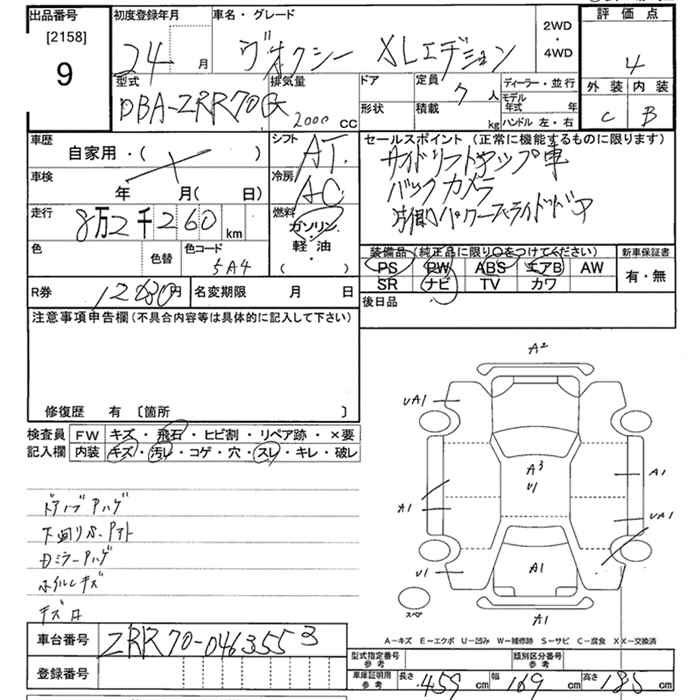 出品番号
[2158]
9
初度登録年月
24 月
車名・グレード
ヴォクシー XLエディション
2WD
・
4WD
評価点
4
外装 内装
C B
型式
DBA-ZRR70G
排気量
2000 cc
ドア
形状
定員 7 人
積載 kg
ディーラー・並行
モデル年式 年
ハンドル 左・右
車歴
自家用・( )
車検
年 月( 日)
走行
8万2千260 km
色
色替
色コード
5A4
シフト
AT
冷房
AC
燃料
ガソリン
軽・油
( )
セールスポイント (正常に機能するものに限ります)
サイドリフトアップ車
バックカメラ
片側パワースライドドア
装備品(純正品に限り○をつけてください)
PS PW ABS エアB AW
SR ナビ TV カワ
新車保証書
有・無
後日品
R券
円
名変期限 月 日
注意事項申告欄(不具合内容等は具体的に記入して下さい)
修復歴 有 〔箇所 〕
検査員
記入欄
FW キズ・飛石・ヒビ割・リペア跡・×要
内装 キズ・汚レ・コゲ・穴・スレ・キレ・破レ
Dミラーハゲ
ホイルキズ
A2
UA1
A3
U1
A1
A1
UA1
U1
A1
A1
スペア
A−キズ E−エクボ U−凹み W−補修跡 S−サビ C−腐食 XX−交換済
車台番号
ZRR70-0463553
登録番号
型式指定番号
参考
類別区分番号
参考
車庫証明用
参考
長さ 459 cm
幅 169 cm
高さ 185 cm